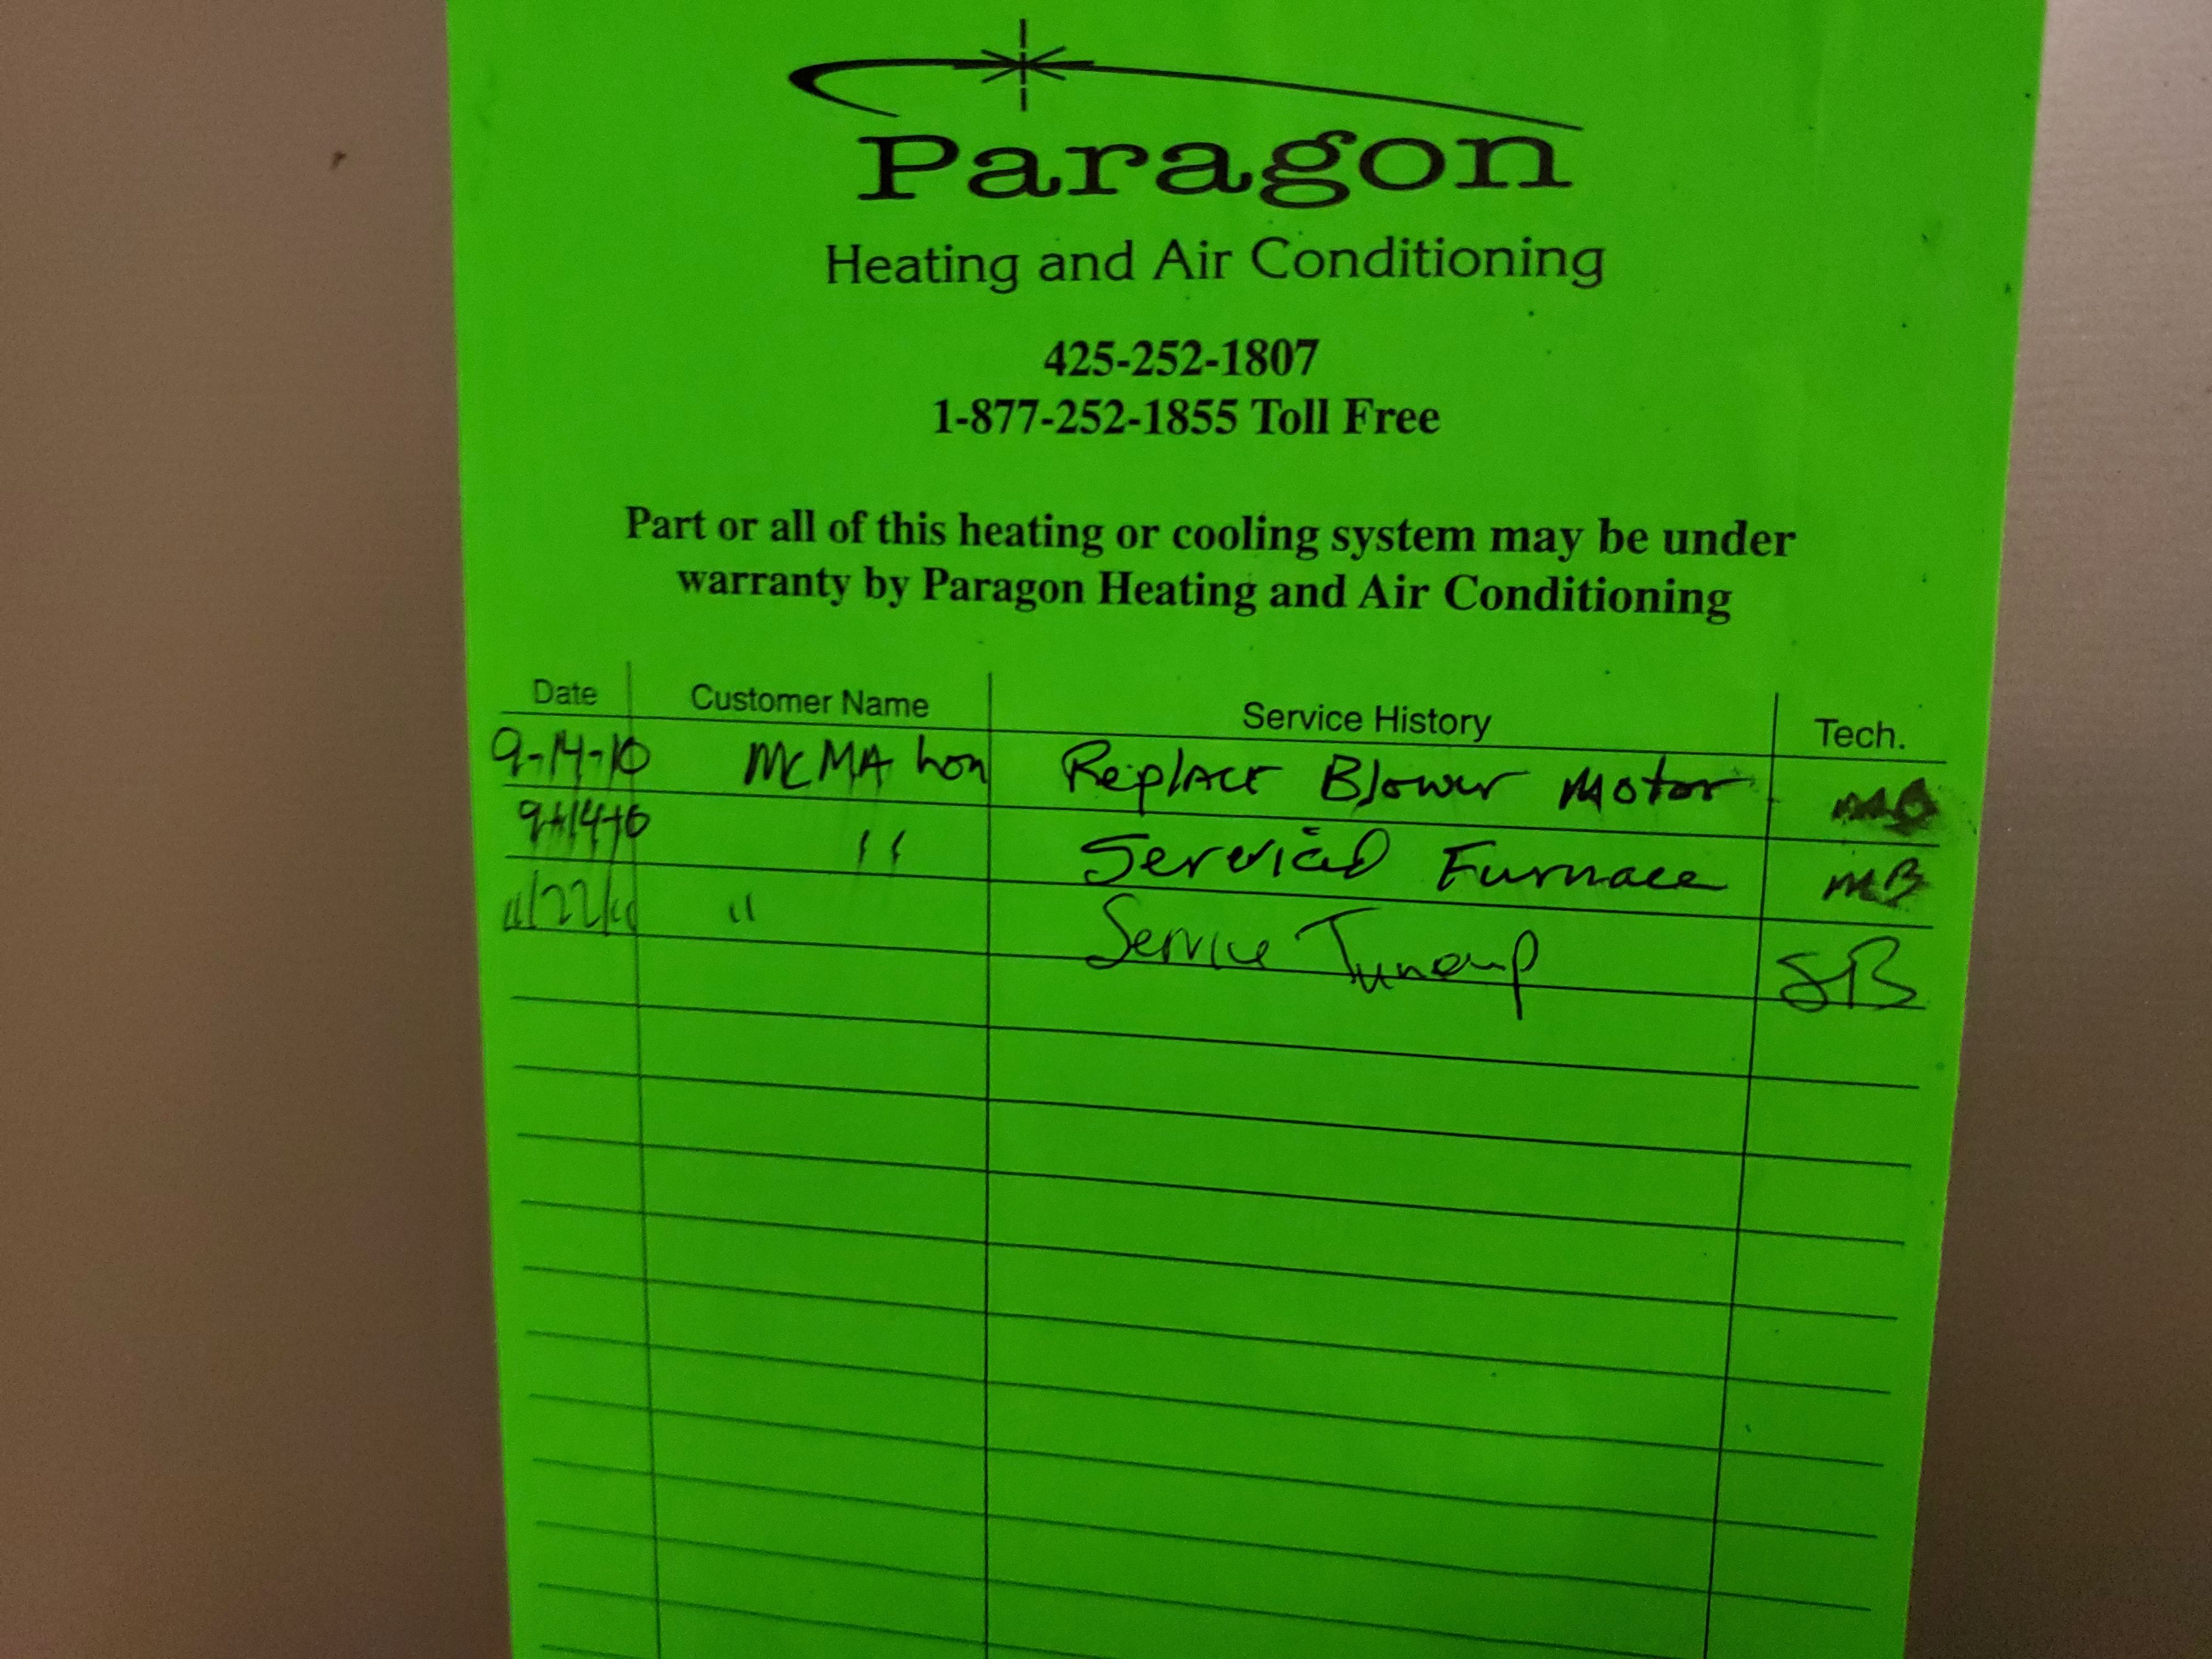 Paragon
Heating and Air Conditioning
425-252-1807
1-877-252-1855 Toll Free
Part or all of this heating or cooling system may be under
warranty by Paragon Heating and Air Conditioning
Date Customer Name Service History Tech.
9-14-10 McMAhon Replace Blower Motor
9-14-10 " Serviced Furnace MB
11/22/11 " Service Tuneup SB